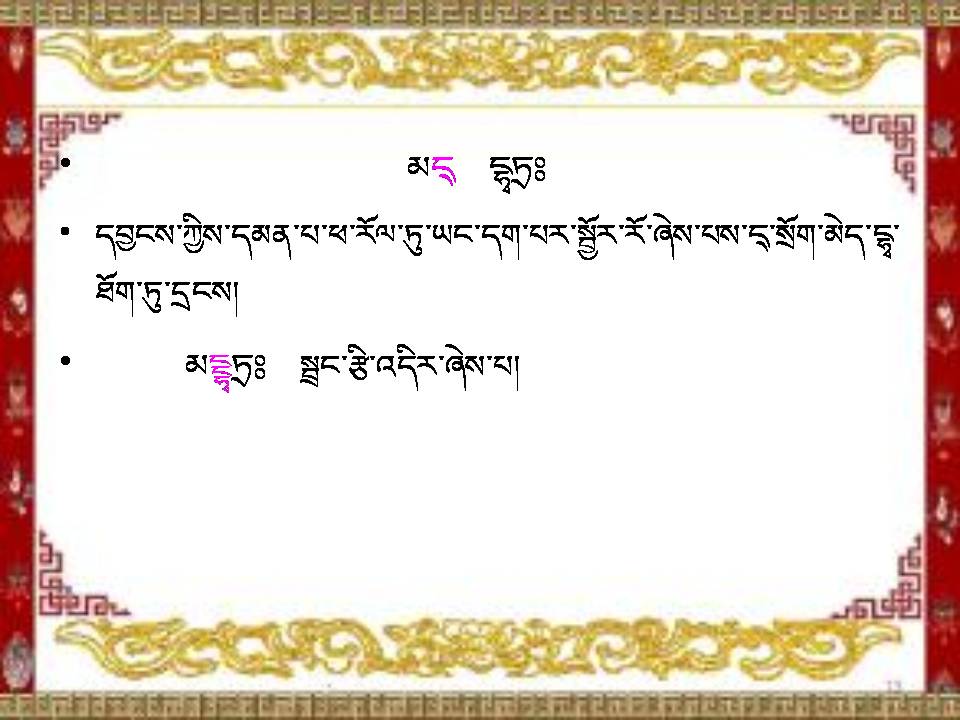 • མད྄ དྷྲྀཏྲཿ
• དབྱངས་ཀྱིས་དམན་པ་ཕ་རོལ་ཏུ་ཡང་དག་པར་སྦྱོར་རོ་ཞེས་པས་ད྄་སྲོག་མེད་དྷྲྀ་
ཐོག་ཏུ་དྲངས།
• མདྡྷྲྀཏྲཿ སྦྲང་རྩི་འདིར་ཞེས་པ།
13